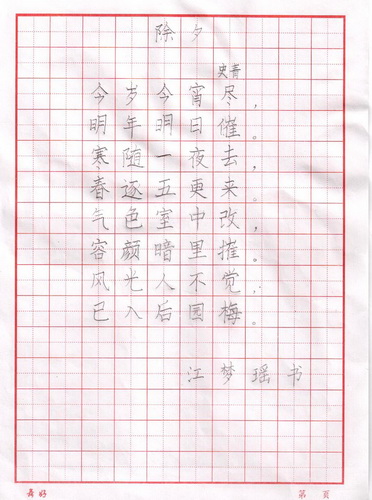 除夕
史青
今岁今宵尽，
明年明日催。
寒随一夜去，
春逐五更来。
气色室中改，
容颜暗里摧。
风光人不觉，
已入后园梅。
江梦瑶书
第 页